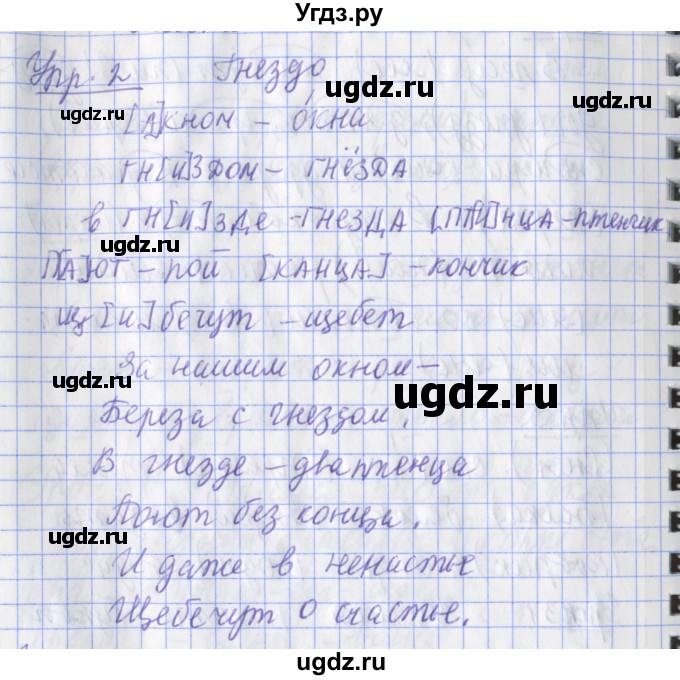 Угдз.ру
Упр. 2 Гнездо
ugdz.ru ugdz.ru
[А]кном - о́кна
гн[и]здом - гнёзда
ugdz.ru
в гн[и]зде - гнезда [пт'и]нца - птенчик
ugdz.ru ugdz.ru
п[А]ют - пой [канца] - кончик
щ[и]бечут - щебет
За нашим окном -
ugdz.ru ugdz.ru
Береза с гнездом.
В гнезде - два птенца
Поют без конца.
ugdz.ru ugdz.ru
И даже в ненастье
Щебечут о счастье.
ugdz.ru